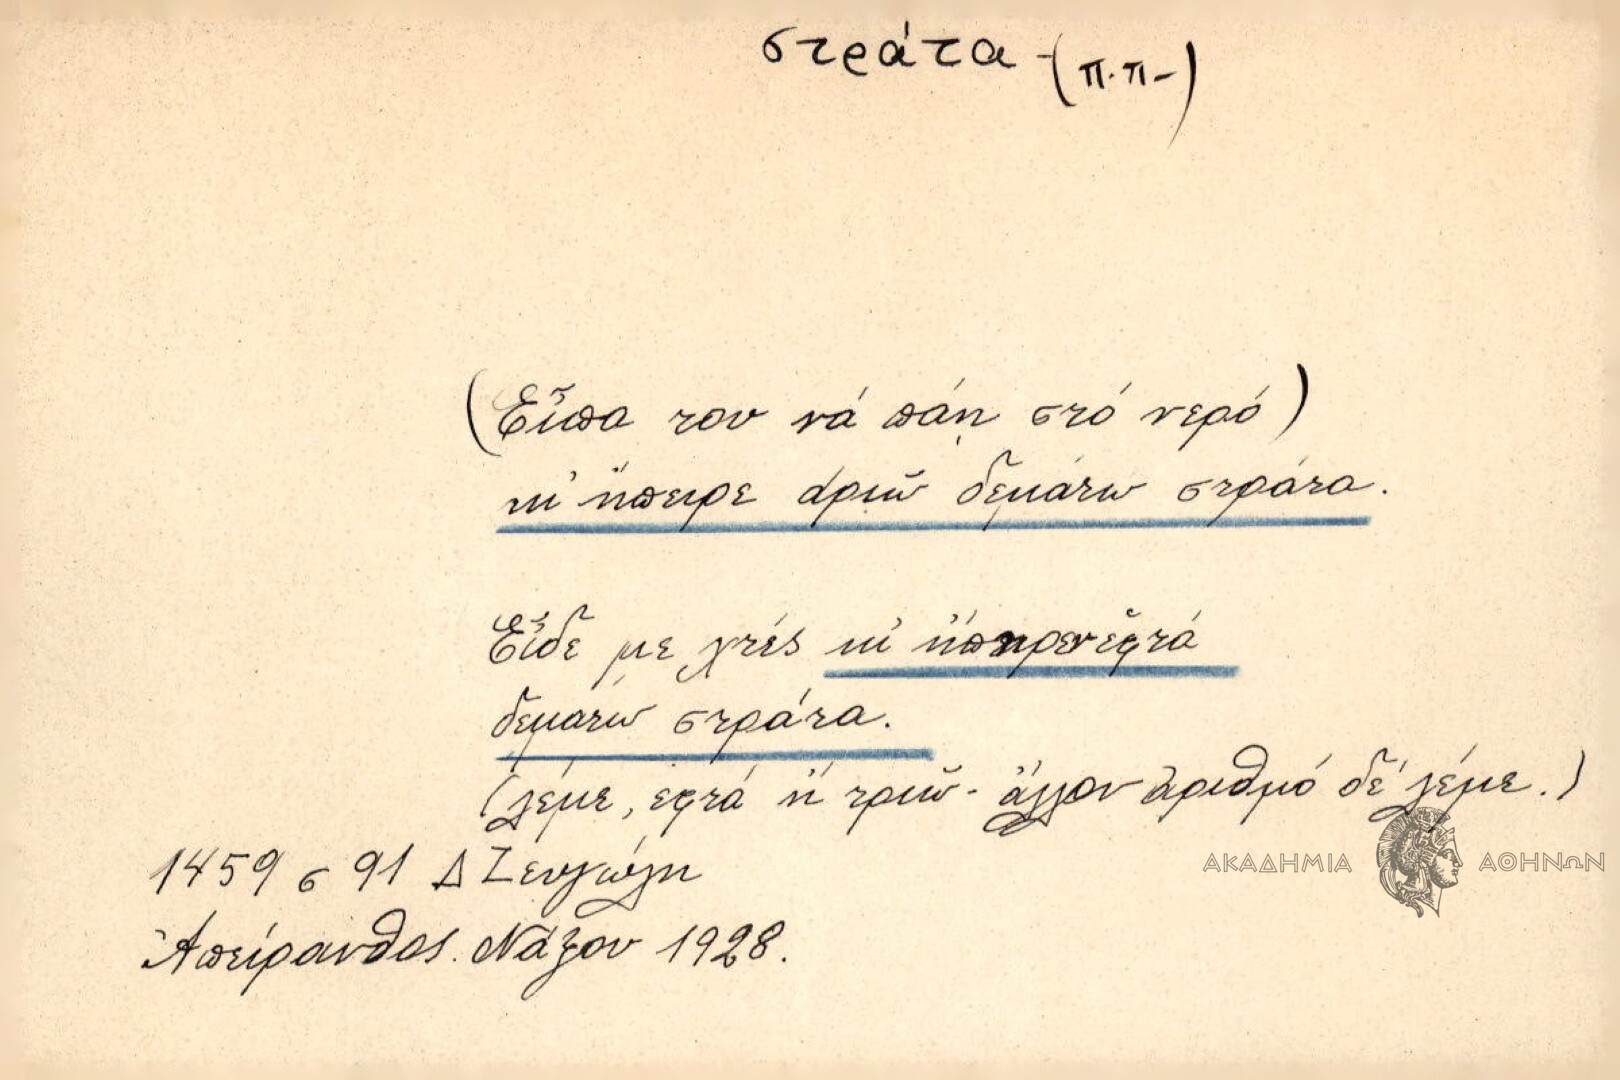 στράτα - (π.π-)
(Εἶπα του νά πάῃ στό νερό)
κι' ἤπειρε dριῶ δεμάτω στράτα.
Εἶδε με χτές κι' ἤπηρεν ἐφτά
δεματιῶ στράτα.
(λέμε, εφτά ἤ τριῶ - ἄλλον ἀριθμό δέ λέμε.)
1459 σ 91 Δ Ζευγώλη
Ἀπείρανθος. Νάξου 1928.
ΑΚΑΔΗΜΙΑ ΑΘΗΝΩΝ